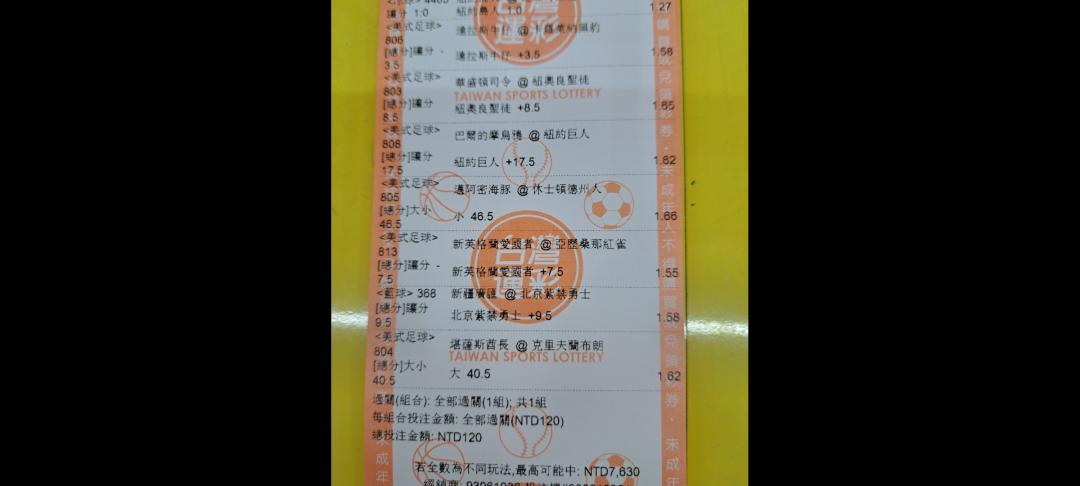 讓分 1:0 紐約島人 1.0 1.27
<美式足球> 達拉斯牛仔 @ 卡羅萊納黑豹
806
[總分]讓分 - 達拉斯牛仔 +3.5 1.58
3.5
<美式足球> 華盛頓司令 @ 紐奧良聖徒
803
TAIWAN SPORTS LOTTERY
[總分]讓分 紐奧良聖徒 +8.5 1.65
8.5
<美式足球> 巴爾的摩烏鴉 @ 紐約巨人
808
[總分]讓分 紐約巨人 +17.5 1.62
17.5
<美式足球> 邁阿密海豚 @ 休士頓德州人
805
[總分]大小 小 46.5 1.66
46.5
<美式足球> 新英格蘭愛國者 @ 亞歷桑那紅雀
813
[總分]讓分 - 新英格蘭愛國者 +7.5 1.55
7.5
<籃球> 368 新疆廣匯 @ 北京紫禁勇士
[總分]讓分 北京紫禁勇士 +9.5 1.58
9.5
<美式足球> 堪薩斯酋長 @ 克里夫蘭布朗
804
TAIWAN SPORTS LOTTERY
[總分]大小 大 40.5 1.62
40.5
過關(組合): 全部過關(1組); 共1組
每組合投注金額: 全部過關(NTD120)
總投注金額: NTD120
若全數為不同玩法,最高可能中: NTD7,630
台灣運彩
未成年